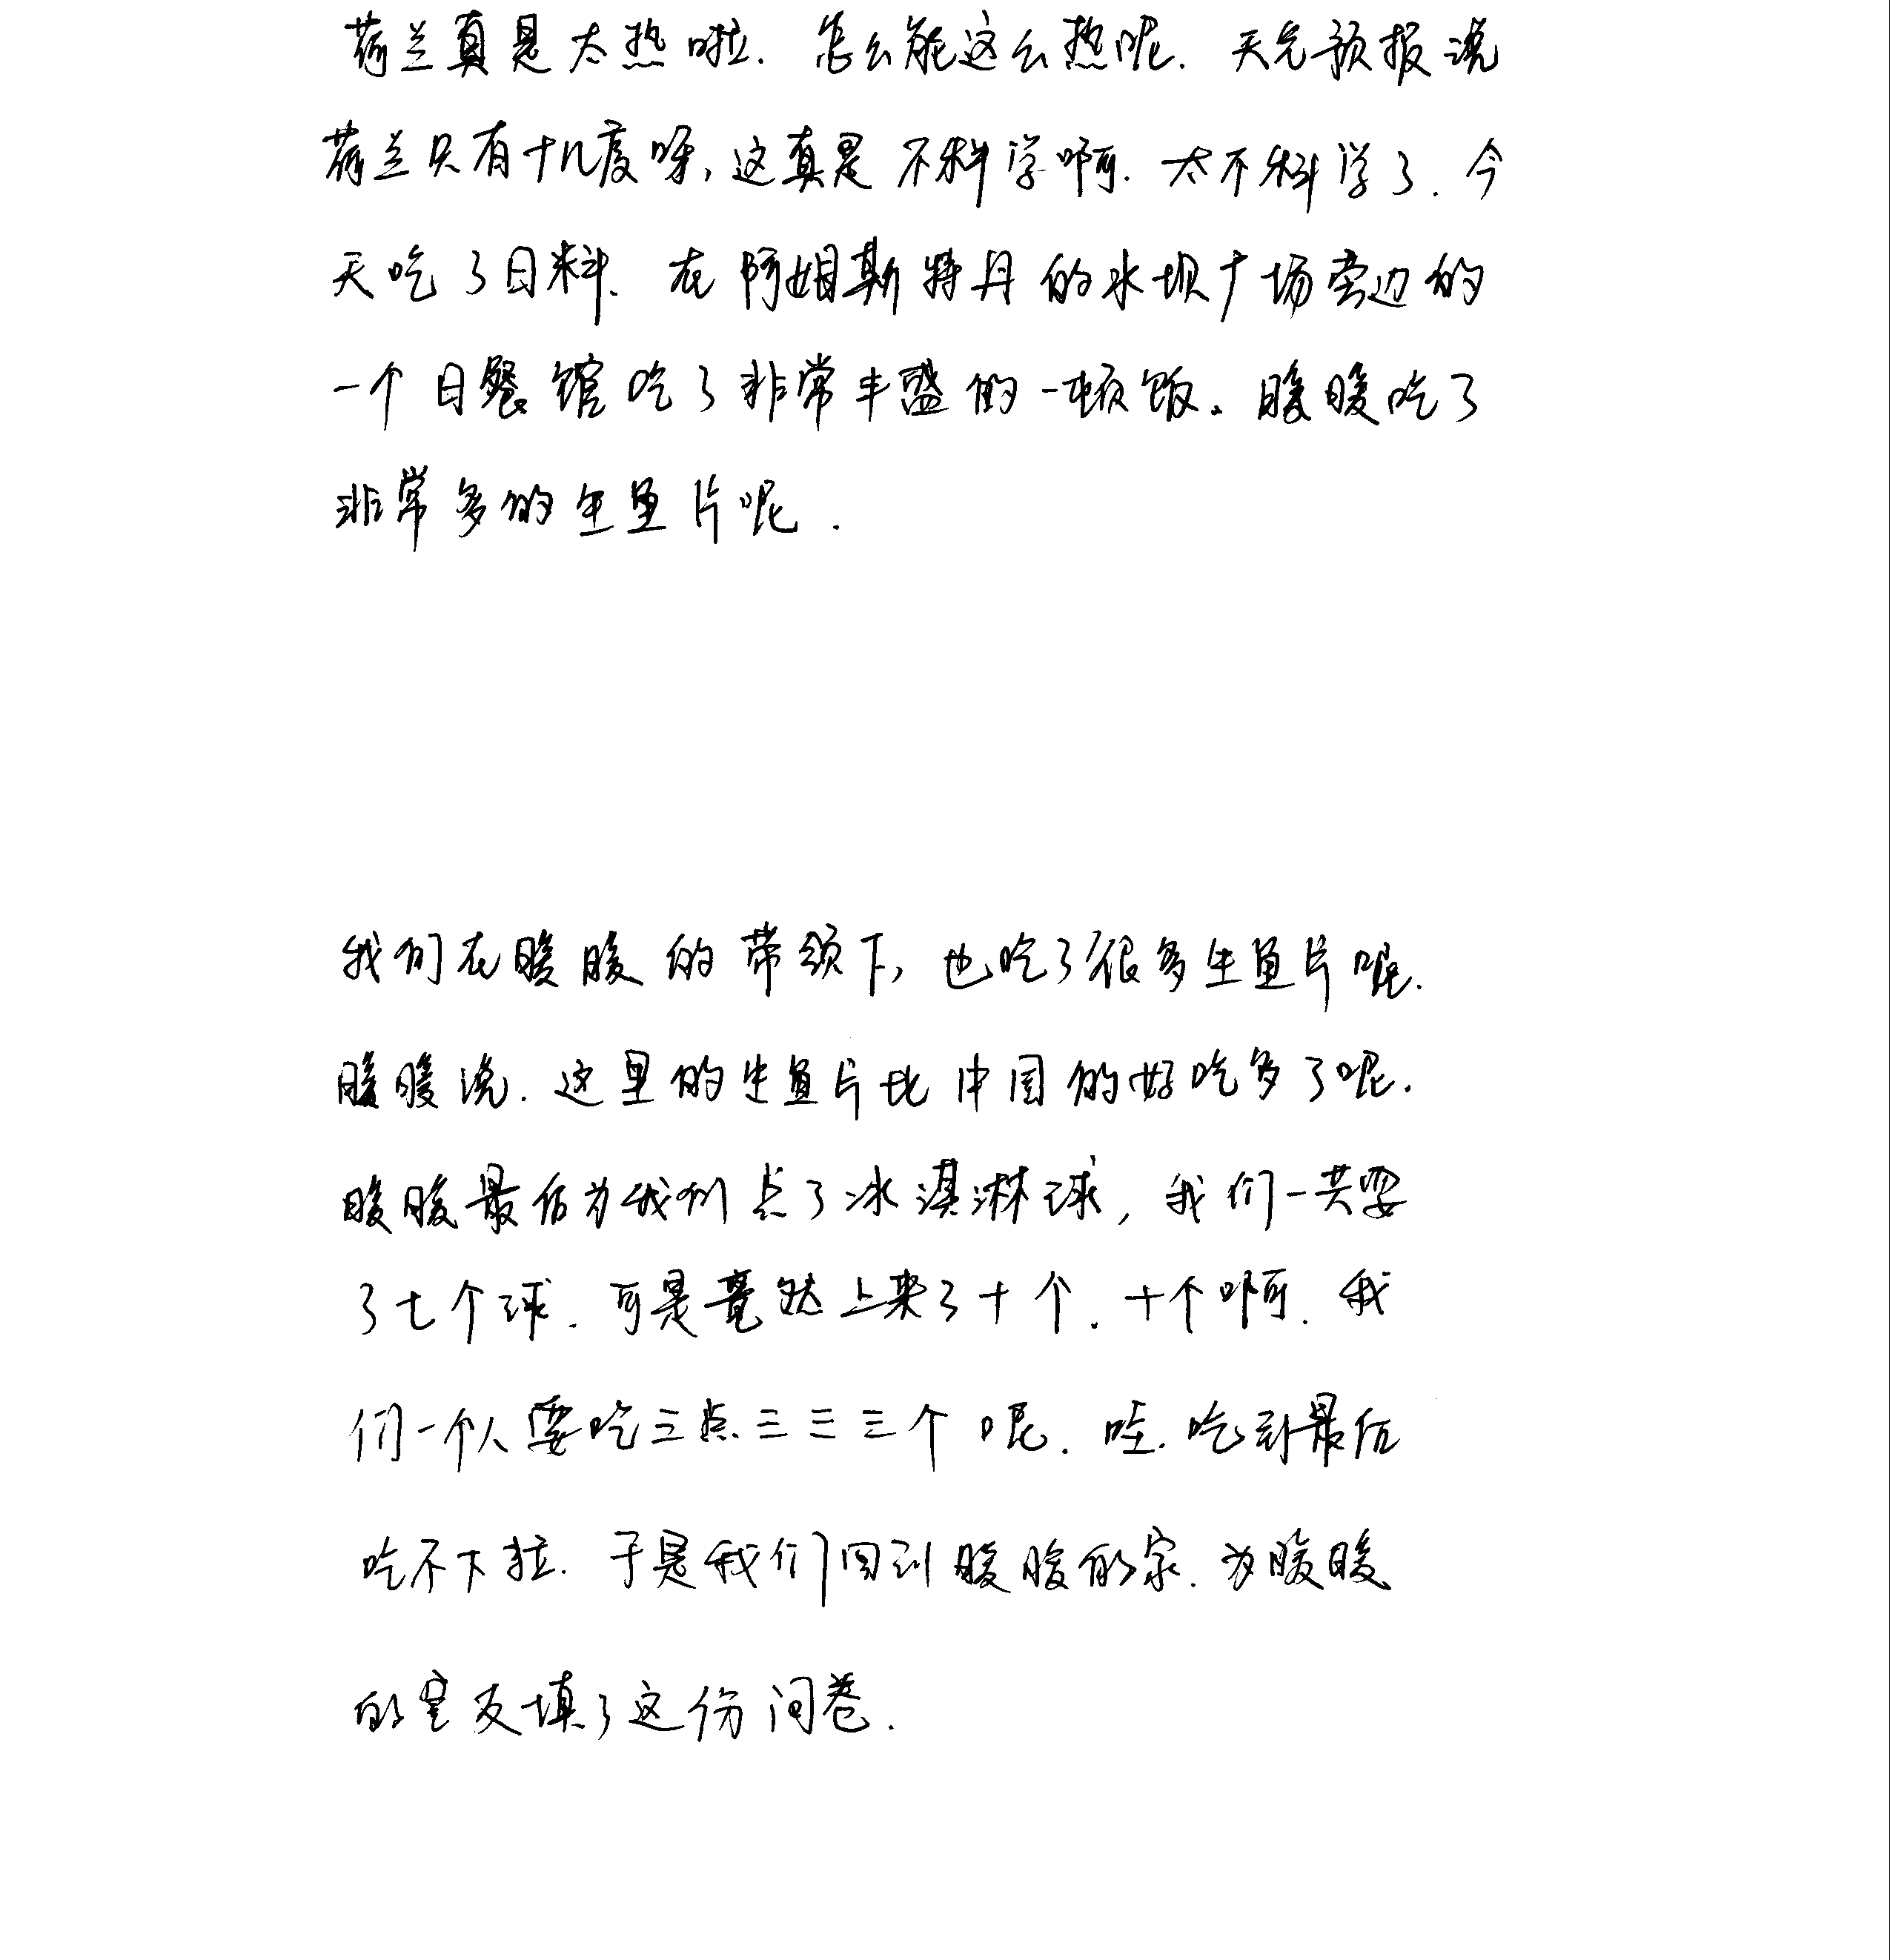 荷兰真是太热啦.怎么能这么热呢.天气预报说
荷兰只有十几度呀,这真是不科学啊.太不科学了.今
天吃了日料.在阿姆斯特丹的水坝广场旁边的
一个日餐馆吃了非常丰盛的一顿饭。暖暖吃了
非常多的生鱼片呢.
我们在暖暖的带领下,也吃了很多生鱼片呢.
暖暖说.这里的生鱼片比中国的好吃多了呢.
暖暖最后为我们点了冰淇淋球,我们一共要
了七个球.可是竟然上来了十个.十个啊.我
们一个人要吃三点三三三个呢.哇.吃到最后
吃不下啦.于是我们回到暖暖的家.为暖暖
的室友填了这份问卷.